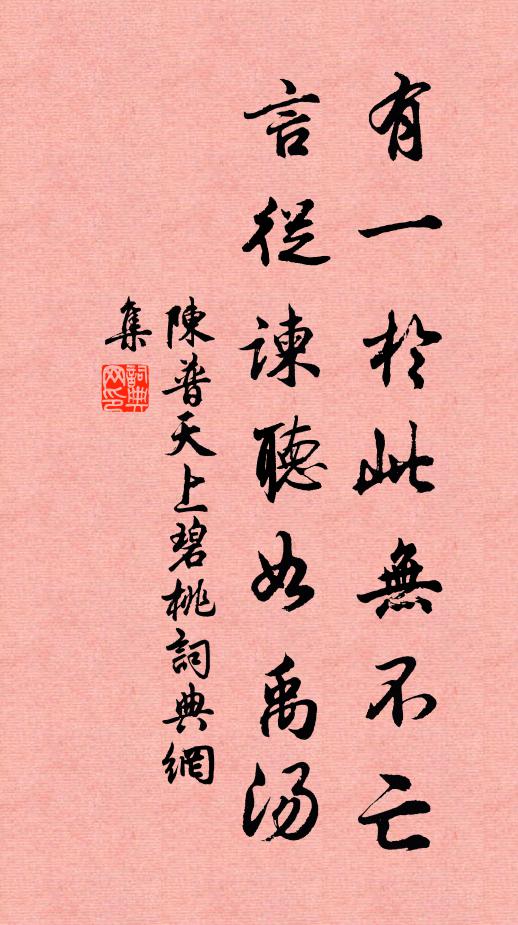 有一於此無不亡
言從諫聽如禹湯
陳普天上碧桃詞典網
集
詞典網印